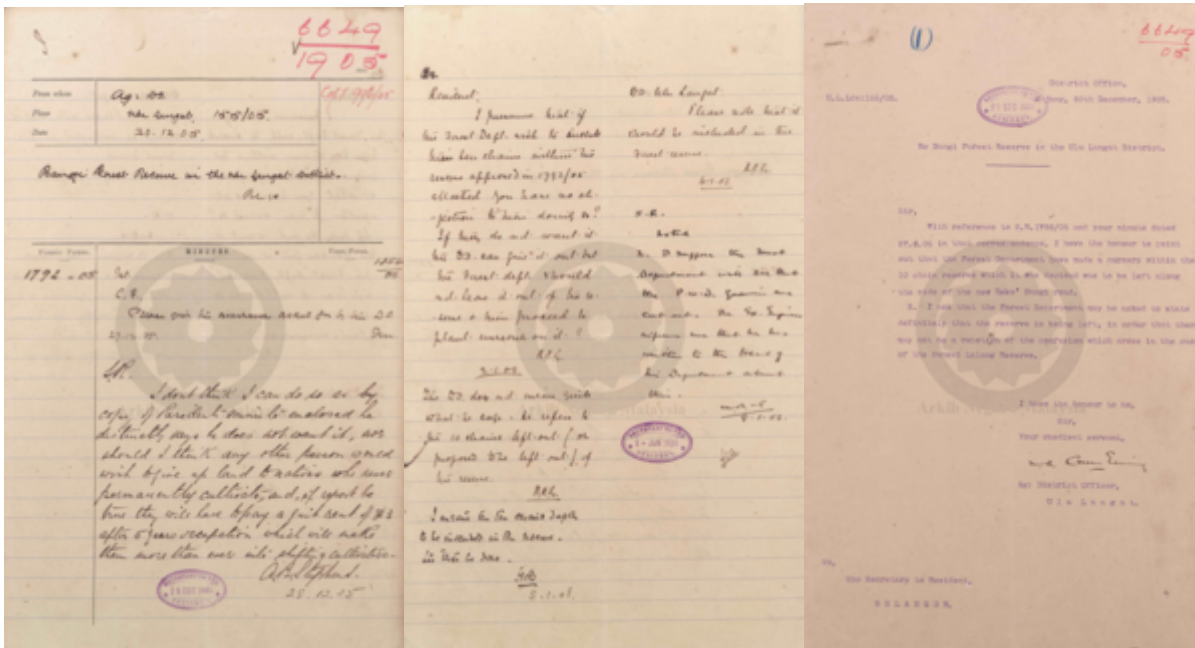 6649
1905
From whom
Ag. DO
Place
Ulu Langat, 1855/05
Date
20.12.05
Bangi Forest Reserve in the Ulu Langat District.
MINUTES
1792-05
C.F.
27.12.05
S.R.
I don't think I can do so as by
copy of Resident's minute enclosed he
distinctly says he does not want it, nor
should I think any other person would
wish to give up land to natives who never
permanently cultivate, and, if report be
true they will have to pay a quit rent of $3
after 5 years occupation which will make
them more than ever into shifting cultivation.
28.12.05
Resident.
I presume that if
the Forest Dept. wish to
ten chains within the
reserve approved in 1792/05
you have no ob-
-jection to their doing so?
If they do not want it
the DO. can give it out but
the Forest dept. should
not leave it out of the re-
-serve & then proceed to
plant on it?
3.1.06
The DO. does not mean quite
what he says. He refers to
the 10 chains left out (or
proposed to be left out) of
the reserve.
I mean the ten chains depth
to be included in the reserve.
5.1.06
DO. Ulu Langat.
Please note that it
should be included in the
forest reserve.
6.1.06
S.R.
Noted
2. I suppose the Forest
Department will see that
the P.W.D. quarries are
cut out. The Ex. Engineer
informs me that he has
written to the Head of
his Department about
this.
(1)
6649
05
District Office,
Kajang, 20th December, 1905.
Re Bangi Forest Reserve in the Ulu Langat District.
Sir,
With reference to S.R. 1792/05 and your minute dated
27.6.05 in that correspondence, I have the honour to point
out that the Forest Department have made a nursery within the
10 chain reserve which it was decided was to be left along
the side of the new Reko' Bangi road.
2. I ask that the Forest Department may be asked to state
definitely that the reserve is being left, in order that there
may not be a repetition of the confusion which arose in the case
of the Sungei Lalang Reserve.
I have the honour to be,
Sir,
Your obedient servant,
Ag: District Officer,
Ulu Langat.
The Secretary to Resident,
SELANGOR.
Arkib Negara Malaysia